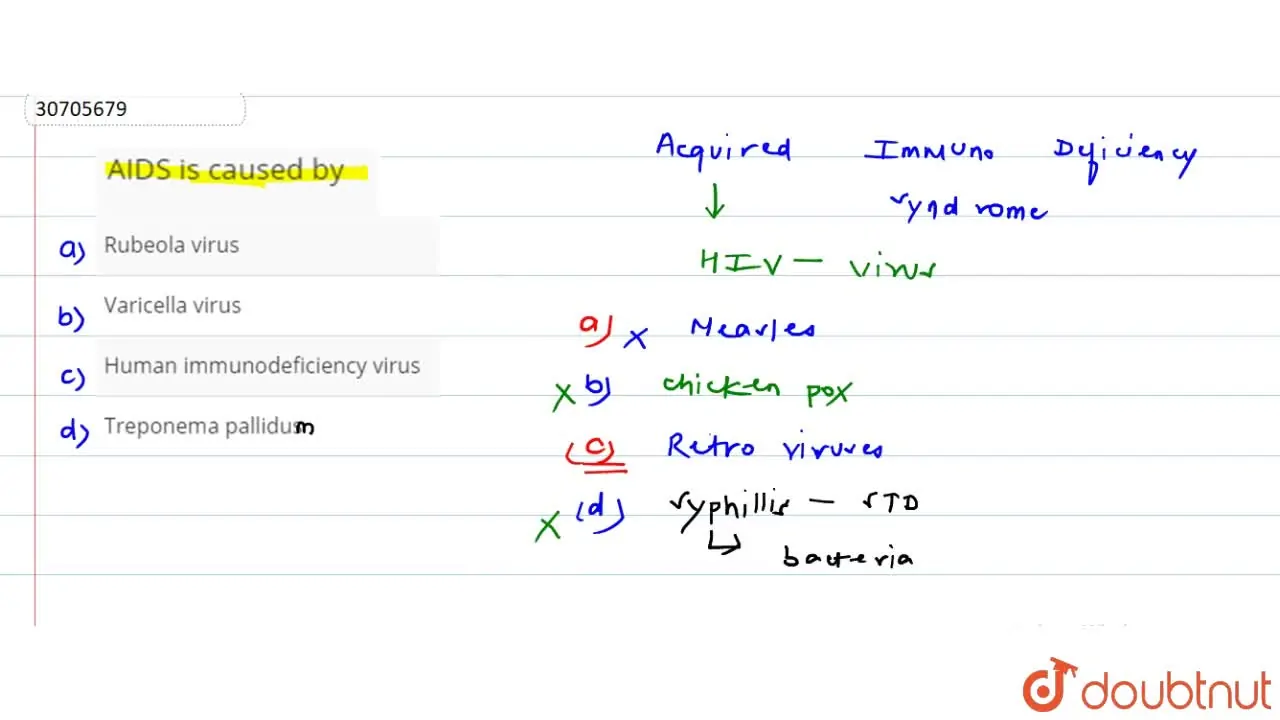 30705679
AIDS is caused by
a) Rubeola virus
b) Varicella virus
c) Human immunodeficiency virus
d) Treponema pallidusm
Acquired Immuno Deficiency
Syndrome
HIV – virus
a) x Measles
x b) chicken pox
(c) Retro viruses
x (d) syphillis – STD
bacteria
doubtnut